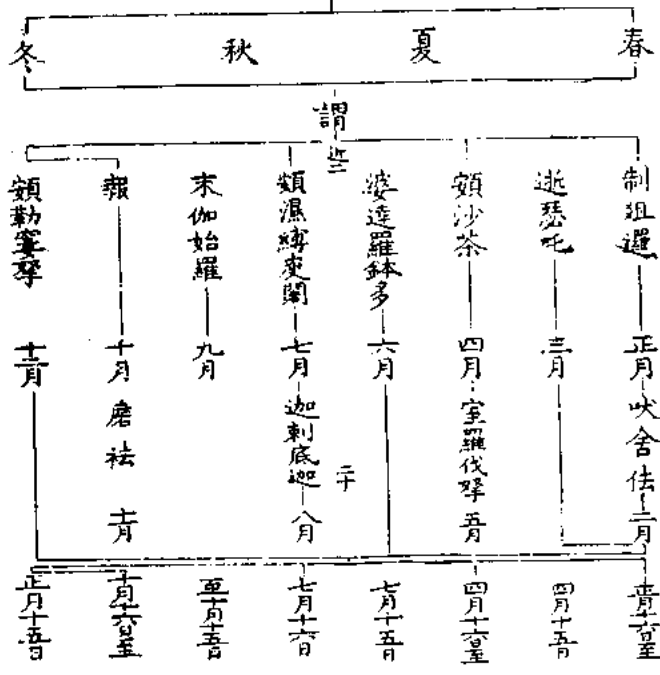 春
夏
秋
冬
謂
制呾邏 正月 吠舍佉 二月
逝瑟吒 三月
頞沙荼 四月 室羅伐拏 五月
婆達羅鉢多 六月
頞濕縛庾闍 七月 迦剌底迦 八月
末伽始羅 九月
報 十月 磨祛 十一月
頞勒窶拏 十二月
二十
正月十六日至
四月十五日
四月十六日至
七月十五日
七月十六日
至十月十五日
十月十六日至
正月十五日